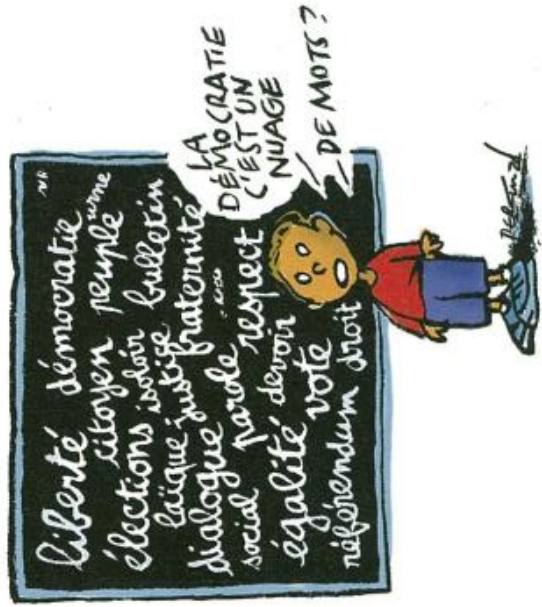 liberté démocratie
citoyen peuple urne
élections isoloir bulletin
laïque justice fraternité
dialogue
social parole respect
égalité devoir
vote
référendum droit
LA
DÉMOCRATIE
C'EST UN
NUAGE
DE MOTS ?